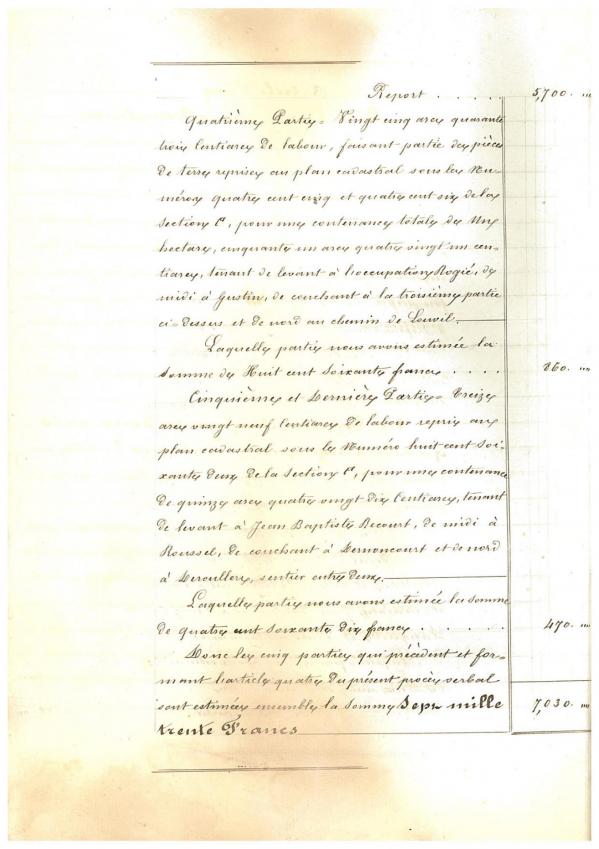 Report . . . . . 5,700. "
Quatrième Partie = Vingt cinq ares quarante
trois Centiares de labour, faisant partie des pièces
de terre reprises au plan cadastral sous les Nu-
méros quatre cent cinq et quatre cent six de la
section C, pour une contenance totale de Un
hectare, cinquante un ares quatre vingt un cen-
tiares, tenant de levant à l'occupation Rogié, de
midi à Gustin, de couchant à la troisième partie
ci-dessus et de nord au chemin de Louvil.
Laquelle partie nous avons estimée la
somme de Huit cent soixante francs . . . . 860. "
Cinquième et Dernière Partie = Treize
ares vingt neuf Centiares de labour repris au
plan cadastral sous le Numéro huit cent soi-
xante deux de la section C, pour une contenance
de quinze ares quatre vingt dix Centiares, tenant
de levant à Jean Baptiste Becourt, de midi à
Roussel, de couchant à Dernoncourt et de nord
à Deroullers, sentier entre deux.
Laquelle partie nous avons estimée la somme
de quatre cent soixante dix francs . . . . . 470. "
Donc les cinq parties qui précèdent et for-
mant l'article quatre du présent procès verbal
sont estimées ensemble la somme Sept mille 7,030. "
trente Francs